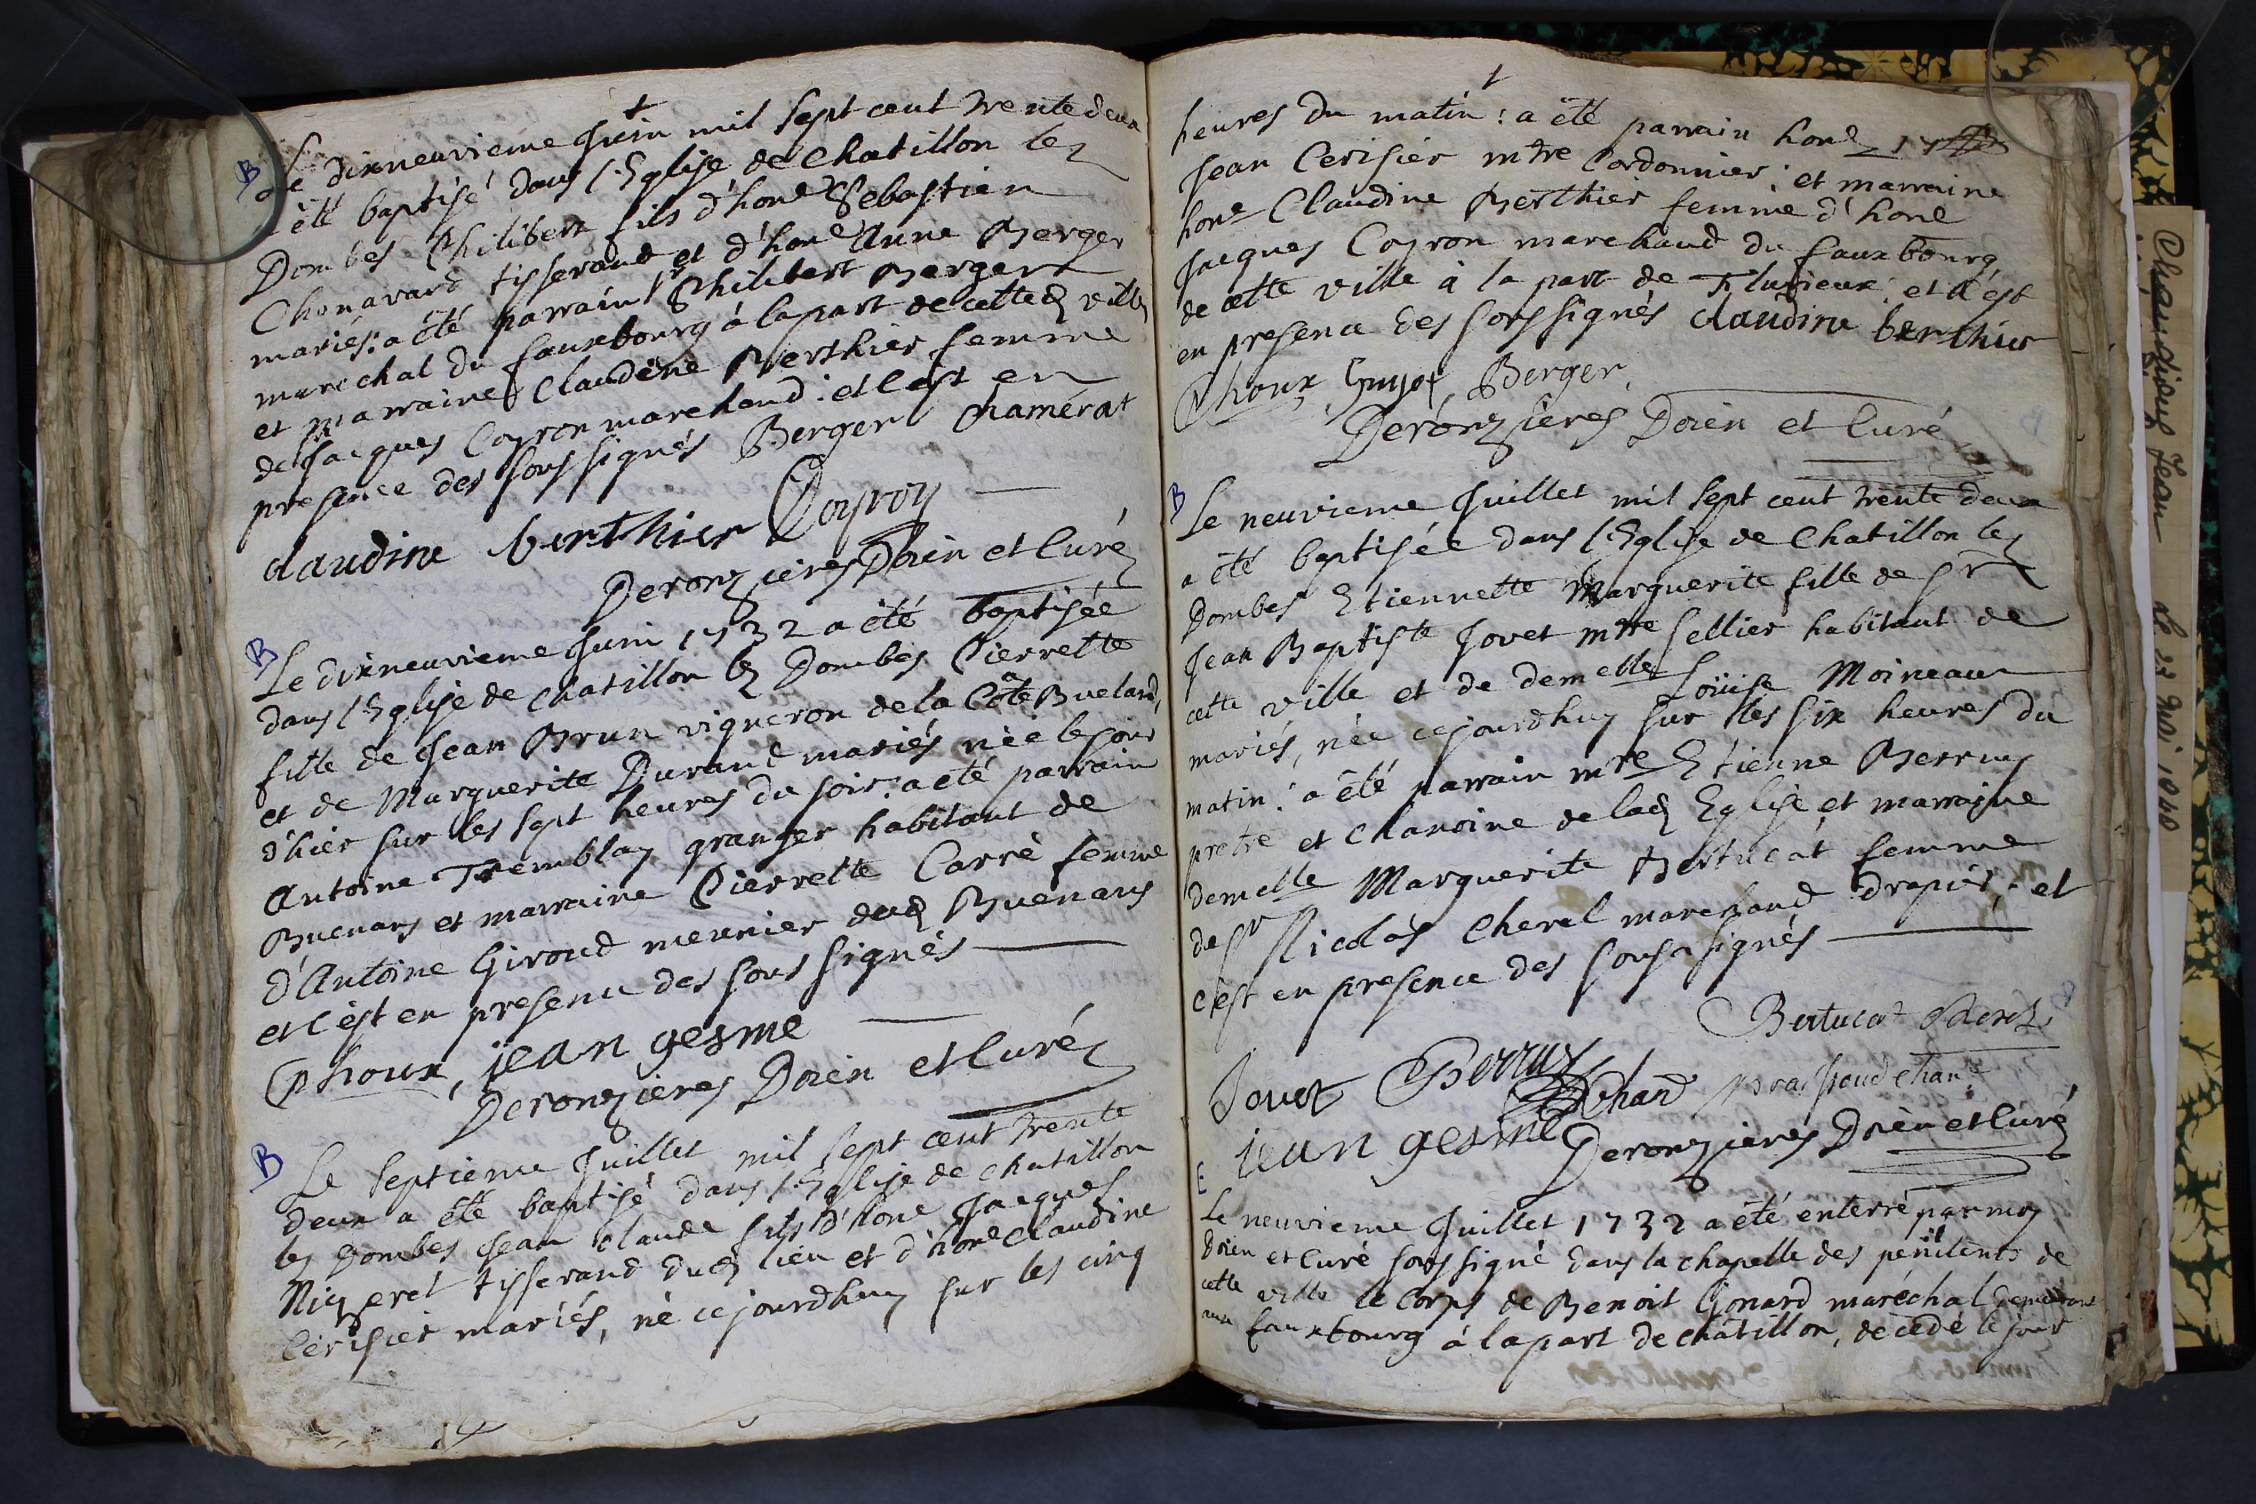 +
B Le dixneuvieme Juin mil sept cent trente deux
a été baptisé dans l'Eglise de Chatillon lez
Dombes Philibert fils d'hone Sebastien
Chonavard tisserand et d'hone Anne Berger
mariés: a été parrain Sr Philibert Berger
marechal du fauxbourg à la part de cette d ville
et marraine Claudine Berthier femme
de Jacques Coyron marchand: et c'est en
presence des sous signés Berger Chamérat
claudine berthier Coyron
Deronzieres Doien et Curé
B Le dixneuvieme Juin 1732 a été baptisée
dans l'Eglise de Chatillon lez Dombes Pierrette
fille de Jean Brun vigneron de la Côte Buelard
et de Marguerite Durand mariés née le jour
d'hier sur les sept heures du soir: a été parrain
Antoine Tremblay granger habitant de
Buenans et marraine Pierrette Carré femme
d'Antoine Giroud meunier dud Buenans
et c'est en presence des sous signés
Phoux, jean gesme
Deronzieres Doien et Curé
B Le septieme Juillet mil sept cent trente
deux a été baptisé dans l'Eglise de chatillon
lez Dombes Jean Claude fils d'hone Jacques
Nizeret tisserand dud lieu et d'hone Claudine
Cerisier mariés, né cejourdhuy sur les cinq
+
heures du matin: a été parrain hone
Jean Cerisier mtre Cordonnier: et marraine
hone Claudine Berthier femme d'hone
Jacques Coyron marchand du fauxbourg
de cette ville à la part de Flurieux: et c'est
en presence des sous signés claudine berthier
Phoux, Guyot, Berger,
Deronzieres Doien et Curé
B Le neuvieme Juillet mil sept cent trente deux
a été baptisée dans l'Eglise de Chatillon lez
Dombes Etiennette Marguerite fille de Sr
Jean Baptiste Jovet mtre sellier habitant de
cette ville et de demelle Loüise Moineaux
mariés, née cejourdhuy sur les six heures du
matin: a été parrain mre Etienne Berruy
pretre et chanoine de lad Eglise, et marraine
demelle Marguerite Bertucat femme
de Sr Nicolas Cheral marchand drapier; et
c'est en presence des sous signés
Bertucat
Jovet Berruy Chand
jean gesme Deronzieres Doien et Curé
E Le neuvieme Juillet 1732 a été enterré par moy
Doien et Curé sous signé dans la chapelle des penitents de
cette ville le Corps de Benoit Gonard maréchal demeurant
aux fauxbourg à la part de châtillon, decedé le jour
Chaudieux Jean